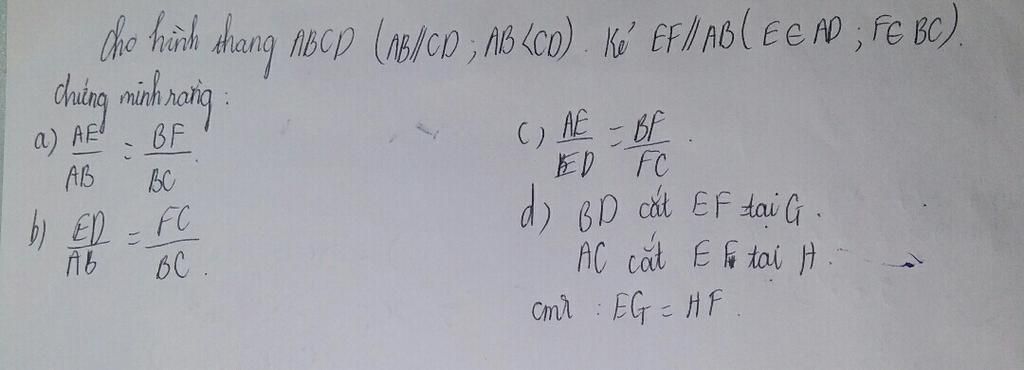 Cho hình thang ABCD (AB//CD ; AB<CD). Kẻ EF//AB ( E∈AD ; F∈BC).
Chứng minh rằng :
a) AE/AB = BF/BC.
b) ED/AB = FC/BC.
c) AE/ED = BF/FC.
d) BD cắt EF tại G.
AC cắt EF tại H.
cmr : EG = HF.